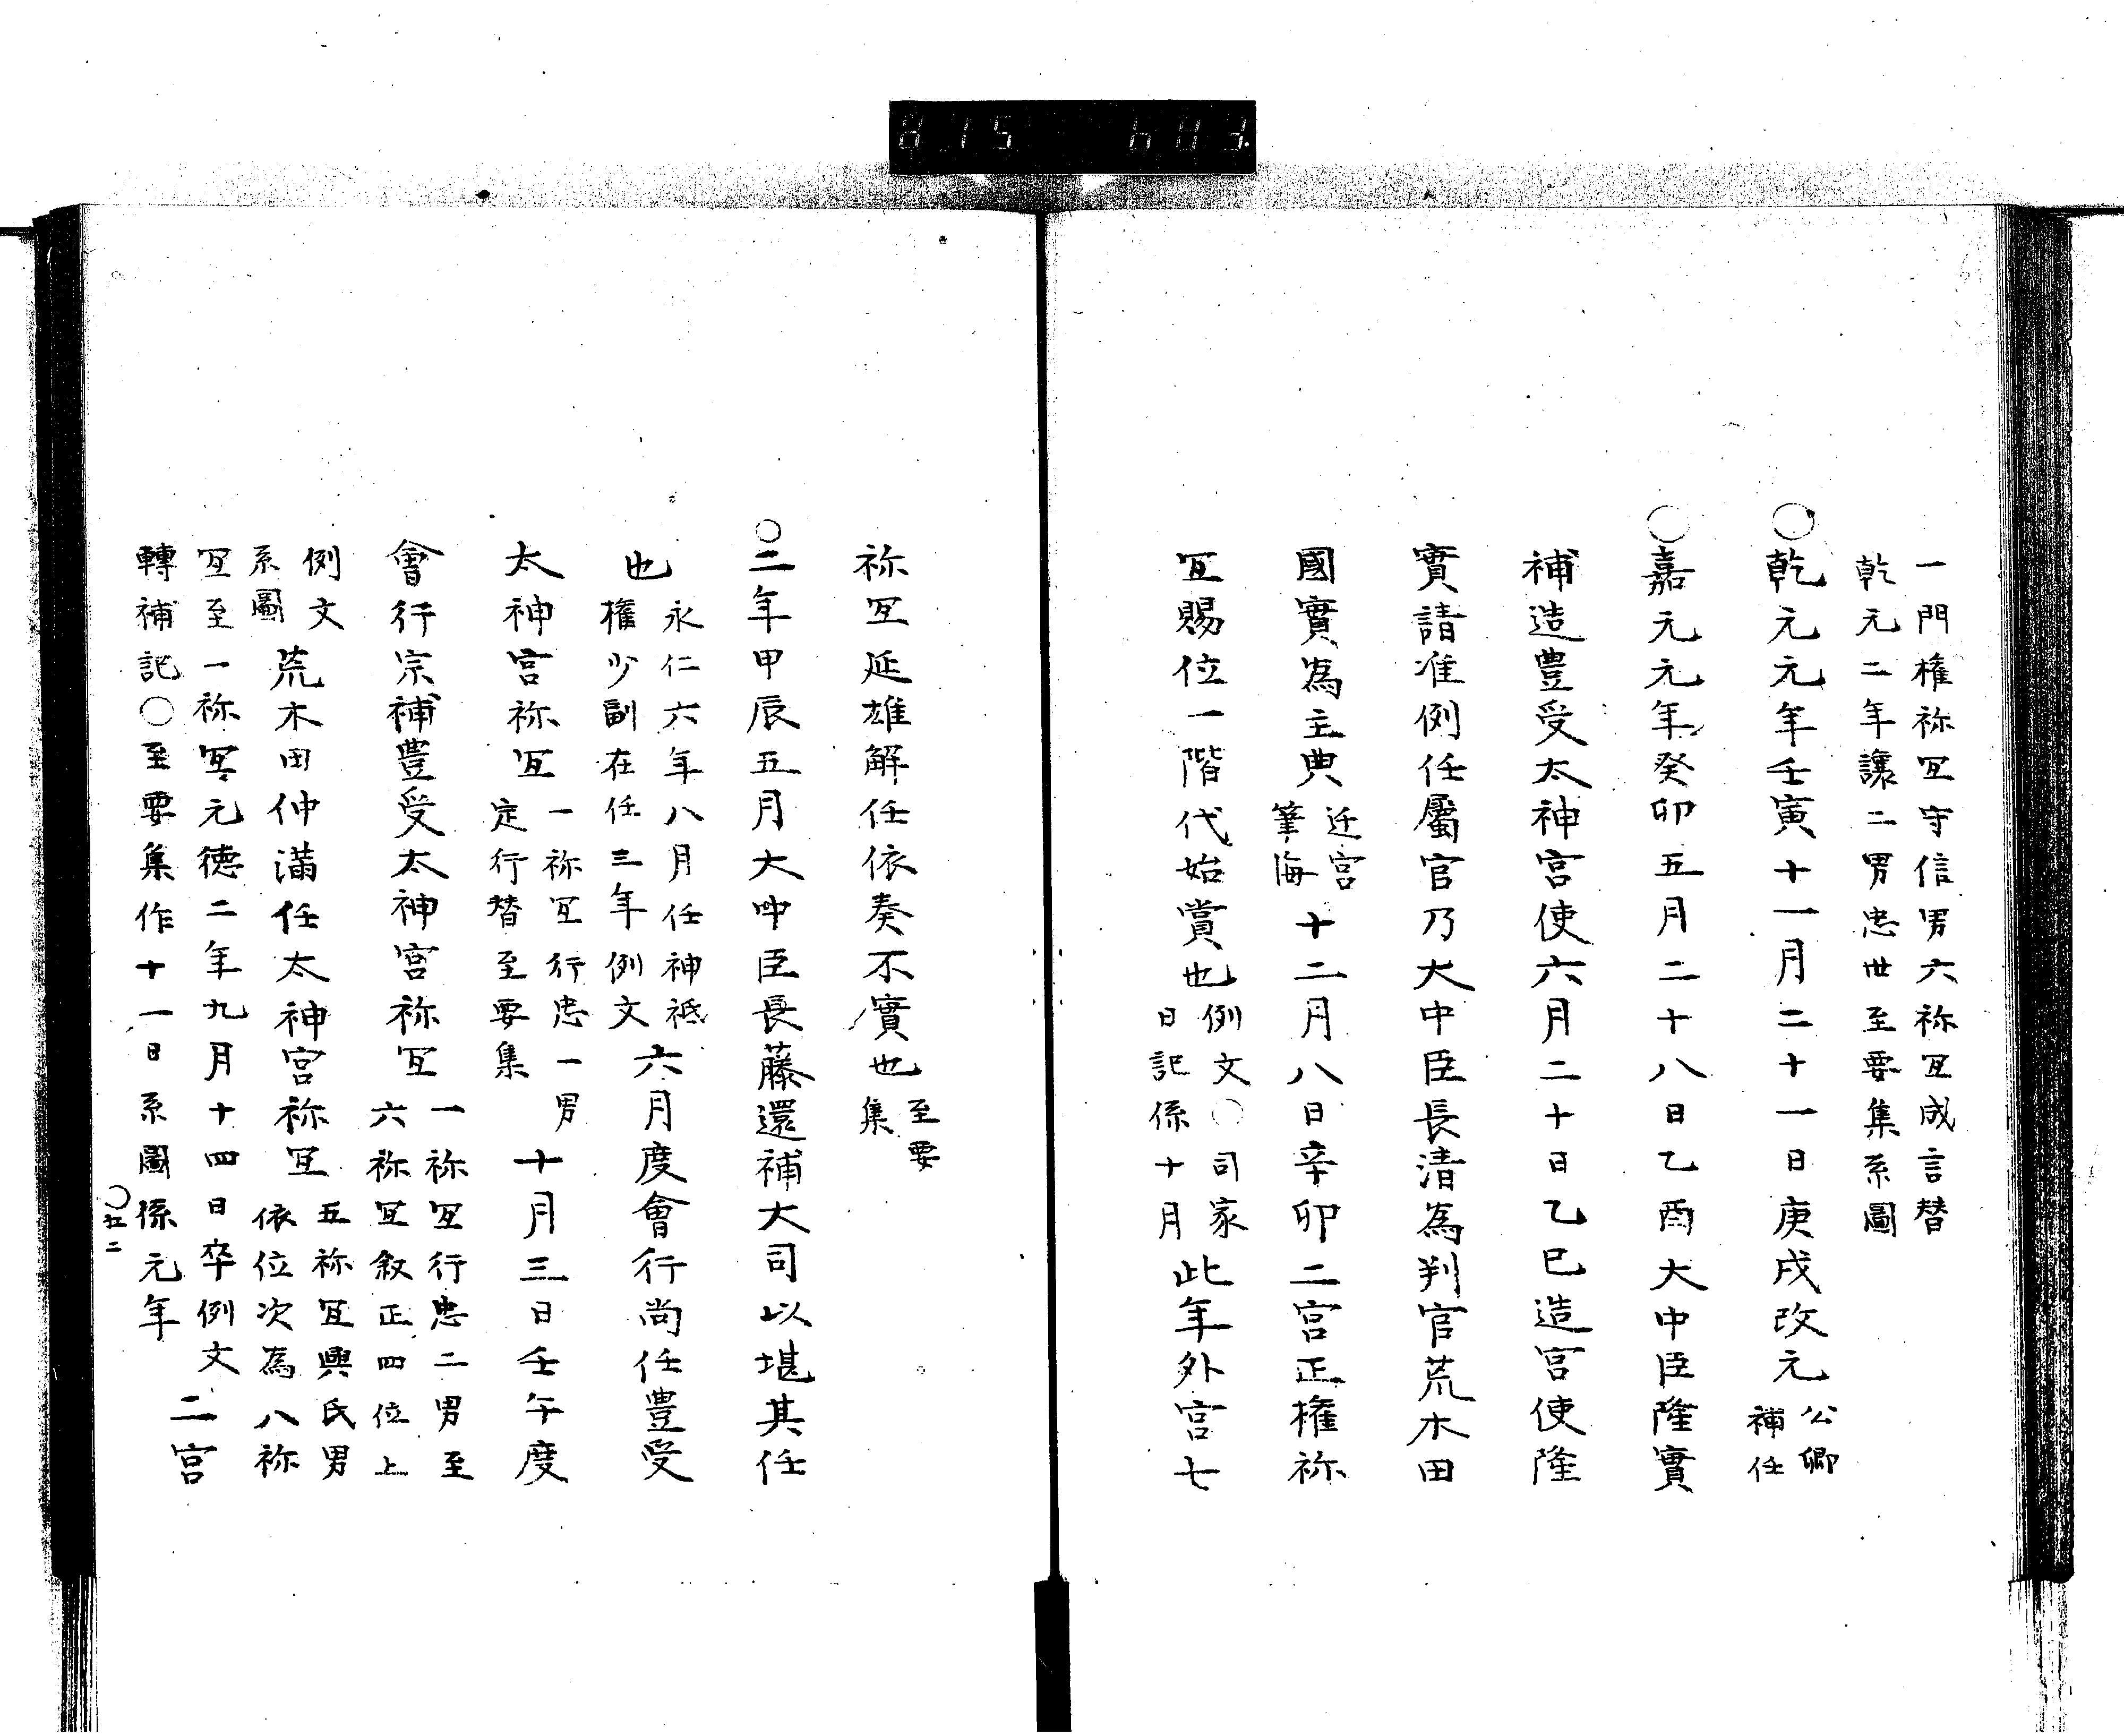 一門権祢冝守信男六祢冝成言替
乾元二年譲二男忠世至要集系圖
○乾元元年壬寅十一月二十一日庚戌改元公卿
補任
○嘉元元年癸卯五月二十八日乙酉大中臣隆實
補造豊受太神宮使六月二十日乙巳造宮使隆
實請准例任屬官乃大中臣長清為判官荒木田
國實為主典迁宮
筆海十二月八日辛卯二宮正権祢
冝賜位一階代始賞也例文○司家
日記係十月此年外宮七
祢冝延雄解任依奏不實也至要
集
○二年甲辰五月大中臣長藤還補大司以堪其任
也永仁六年八月任神祗
権少副在任三年例文六月度會行尚任豊受
太神宮祢冝一祢冝行忠一男
定行替至要集十月三日壬午度
會行宗補豊受太神宮祢冝一祢冝行忠二男至
六祢冝叙正四位上
例文
系圖荒木田仲満任太神宮祢冝五祢冝興氏男
依位次為八祢
冝至一祢冝元徳二年九月十四日卒例文
轉補記○至要集作十一日系圖係元年二宮
○五二